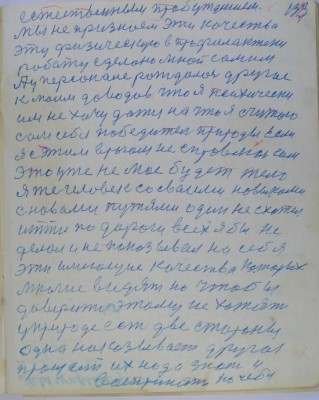 естественным пробуждением.
Мы не признаем эти качества
эту физическую в профилактики
работу сделано мной самим
А у персонале рождалось другое
к моим доводов что я психически
им не хочу дать на что я считаю
сам себя победител природы Если
я с этим врагом не справлюсь сам
Это уже не мое будет тело
я те человек со своими новинками
с новыми путями один не схотел
итти по дороги всех я бы не
делал и не показывал на себя
эти имеющие качества Которых
многие видят но чтобы
доверит этому не хотят
у природе есть две стороны
одна наказывает другая
прощает их надо знат и
воспринят на себя